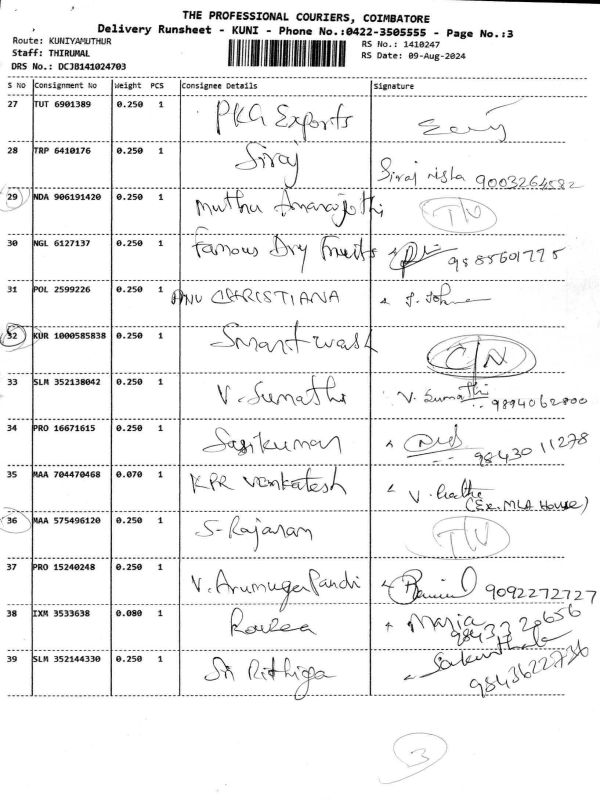 THE PROFESSIONAL COURIERS, COIMBATORE
Delivery Runsheet - KUNI - Phone No.:0422-3505555 - Page No.:3
Route: KUNIYAMUTHUR RS No.: 1410247
Staff: THIRUMAL RS Date: 09-Aug-2024
DRS No.: DCJB141024703
S No Consignment No Weight PCS Consignee Details Signature
27 TUT 6901389 0.250 1 PKG Exports
28 TRP 6410176 0.250 1 Siraj Siraj nisha 9003264582
29 NDA 906191420 0.250 1 Muthu
30 NGL 6127137 0.250 1 Famous Dry Fruits 9885601775
31 POL 2599226 0.250 1 ANU CHRISTIANA
32 KUR 1000585838 0.250 1 Smart wash C/N
33 SLM 352138042 0.250 1 V. Sumathi V. Sumathi 9894062800
34 PRO 16671615 0.250 1 Sasikumar 98430 11278
35 MAA 704470468 0.070 1 KPR Venkatesh V. (Ex. MLA House)
36 MAA 575496120 0.250 1 S-Rajaram
37 PRO 15240248 0.250 1 V. Arumuga Pandi 9092272727
38 IXM 3533638 0.080 1 Maria
39 SLM 352144330 0.250 1 Sri Rithiga 9843622736
3